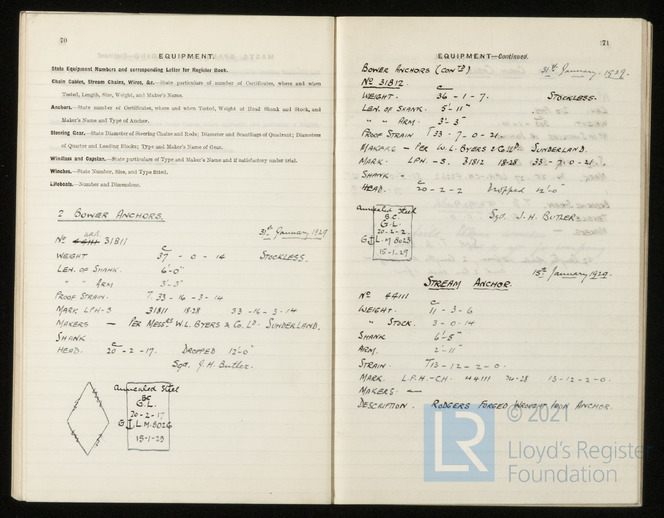 70
EQUIPMENT.
State Equipment Numbers and corresponding Letter for Register Book.
Chain Cables, Stream Chains, Wires, &c.—State particulars of number of Certificates, where and when
Tested, Length, Size, Weight, and Maker's Name.
Anchors.—State number of Certificates, where and when Tested, Weight of Head Shank and Stock, and
Maker's Name and Type of Anchor.
Steering Gear.—State Diameter of Steering Chains and Rods; Diameter and Scantlings of Quadrant; Diameters
of Quarter and Leading Blocks; Type and Maker's Name of Gear.
Windlass and Capstan.—State particulars of Type and Maker's Name and if satisfactory under trial.
Winches.—State Number, Size, and Type fitted.
Lifeboats.—Number and Dimensions.
2 BOWER ANCHORS.
31st January 1929
No 31811
WEIGHT c 37 - 0 - 14 STOCKLESS.
LEN. OF SHANK. 6'-0"
" " ARM 3'-3"
PROOF STRAIN. T. 33 - 16 - 3 - 14
MARK LPH-S 31811 18.28 33 - 16 - 3 - 14
MAKERS — PER MESSRS W.L. BYERS & CO. LD. SUNDERLAND.
SHANK
HEAD. c 20 - 2 - 17. DROPPED 12'-0"
Sgd. J.H. Butler.
Annealed Steel
BC
G.L.
20-2-17
G J L.M. 8026
15-1-29
71
EQUIPMENT—Continued.
BOWER ANCHORS (CONTD) 31st January 1929.
No 31812
WEIGHT. c 36 - 1 - 7. STOCKLESS.
LEN. OF SHANK. 5'-11"
" " ARM. 3'-3"
PROOF STRAIN T 33 - 7 - 0 - 21.
MAKERS - PER W.L. BYERS & CO LD SUNDERLAND.
MARK. LPH-S. 31812 18.28 33 - 7 - 0 - 21.
SHANK -
HEAD. c 20 - 2 - 2 Dropped 12'-0"
Sgd. J.H. BUTLER.
Annealed Steel
B.C.
G.L.
20-2-2.
G J L.M 8023
15-1-29
15th January 1929.
STREAM ANCHOR.
No 44111
WEIGHT. c 11 - 3 - 6
" STOCK. 3 - 0 - 14
SHANK 6'-5"
ARM. 2'-11"
STRAIN T 13 - 12 - 2 - 0.
MARK. L.P.H.-CH. 44111 34.28 13-12-2-0.
MAKERS. —
DESCRIPTION. RODGERS FORGED WROUGHT IRON ANCHOR.
© 2021
LR
Lloyd's Register
Foundation